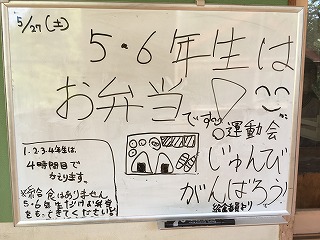 5/27(土)
5・6年生は
お弁当
です!
1.2.3.4年生は
4時間目で
かえります。
※給食はありません
5・6年生だけお弁当
をもってきてください!
○運動会
じゅんび
がんばろう!
給食委員より